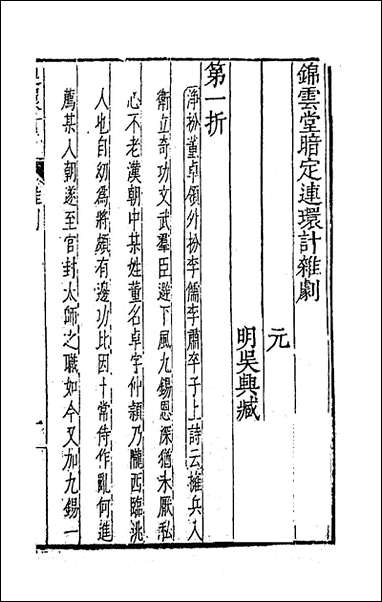 錦雲堂暗定連環計雜劇
元
明吳興臧
第一折
淨扮董卓領外扮李儒李肅卒子上詩云擁兵入
衛立奇功文武羣臣避下風九錫恩深猶未厭私
心不老漢朝中某姓董名卓字仲穎乃隴西臨洮
人也自幼為將頗有邊功比因十常侍作亂何進
薦某入朝遂至官封太師之職如今又加九錫一